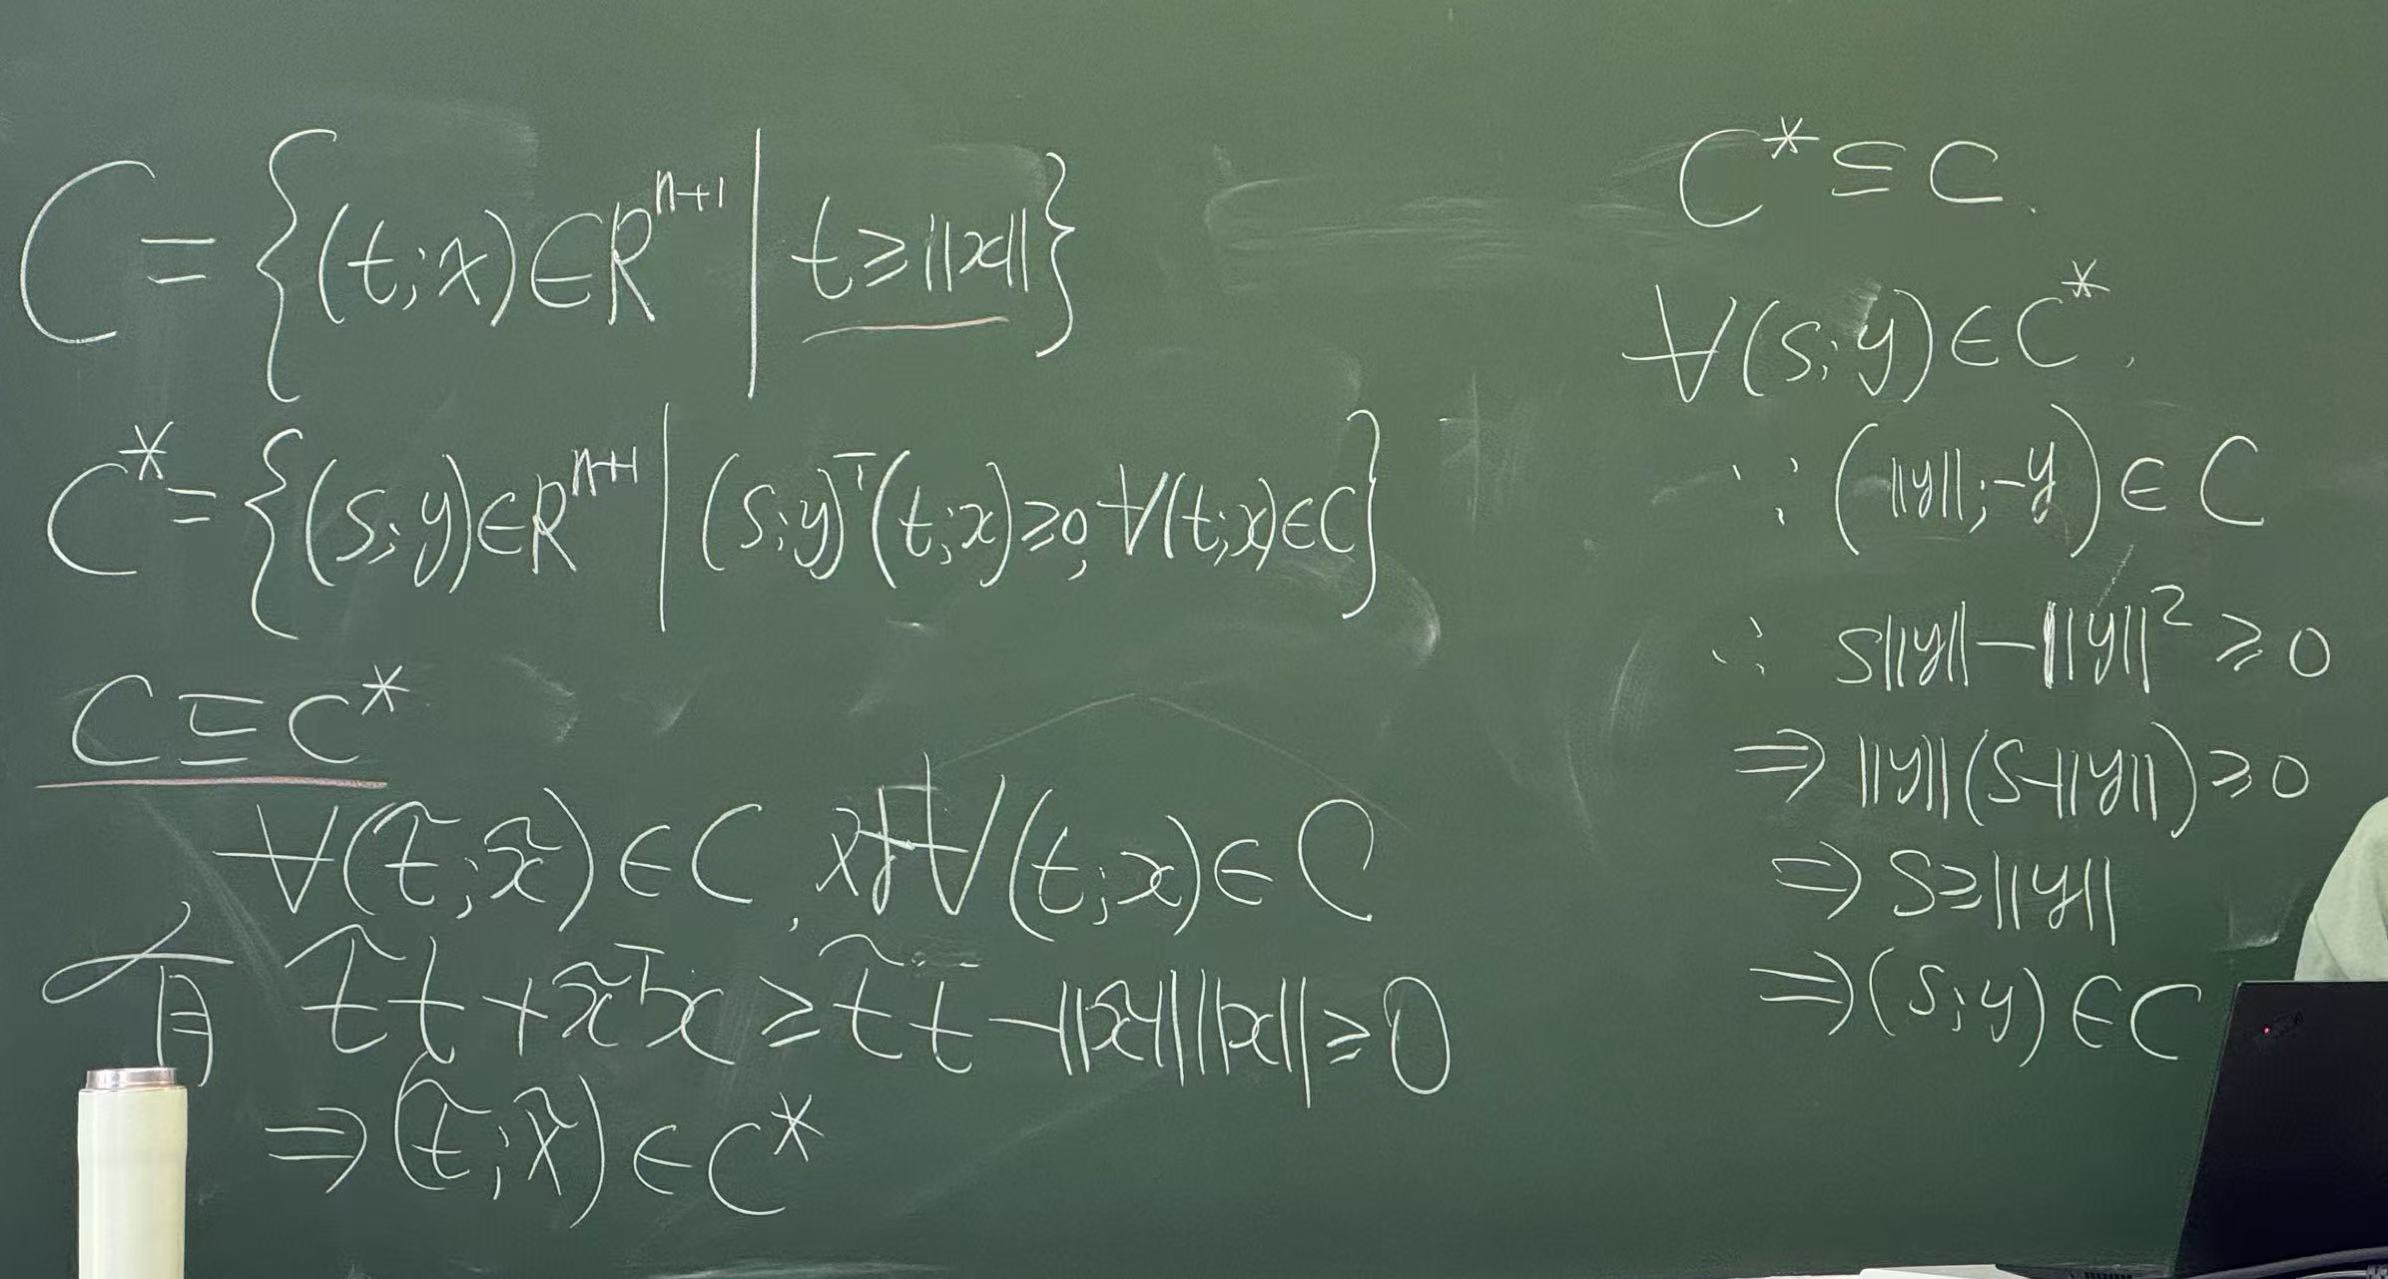 C = {(t;x)∈R^{n+1} | t≥||x||}
C* = {(s;y)∈R^{n+1} | (s;y)^T(t;x)≥0, ∀(t;x)∈C}
C⊆C*
∀(t̃;x̃)∈C, 对∀(t;x)∈C
有 t̃t+x̃^Tx ≥ t̃t-||x̃||||x||≥0
⇒(t̃;x̃)∈C*
C*⊆C.
∀(s;y)∈C*,
∵ (||y||;-y)∈C
∴ s||y||-||y||²≥0
⇒||y||(s-||y||)≥0
⇒s≥||y||
⇒(s;y)∈C